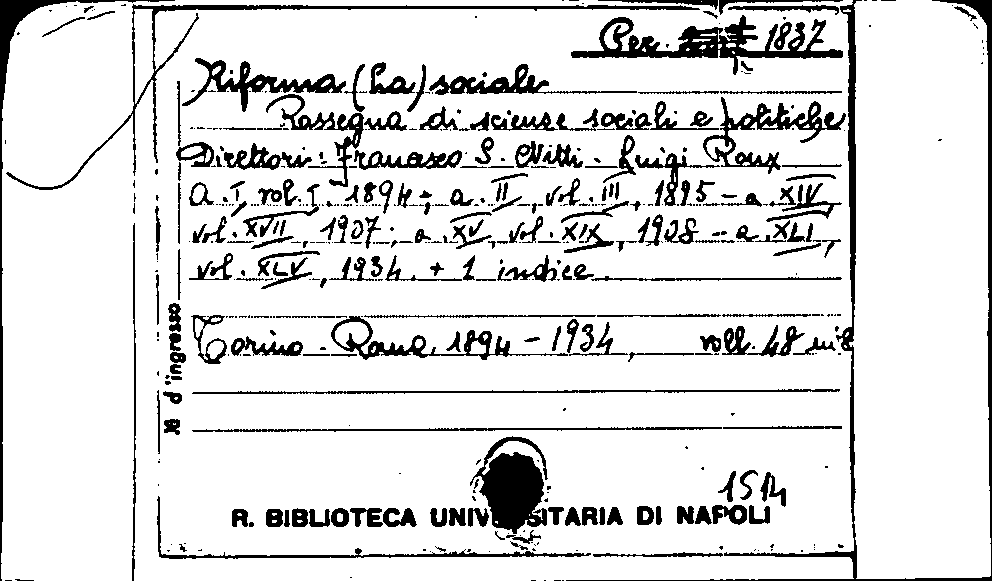 Per. 1837
Riforma (La) sociale
Rassegna di scienze sociali e politiche
Direttori: Francesco S. Nitti - Luigi Roux
A. I, vol. I. 1894-; a. II, vol. III, 1895 - a. XIV,
vol. XVII, 1907; a. XV, vol. XIX, 1908 - a. XLI,
vol. XLV, 1934. + 1 indice.
Torino - Roma, 1894 - 1934, voll. 48 in 8
№ d'ingresso
1514
R. BIBLIOTECA UNIVERSITARIA DI NAPOLI